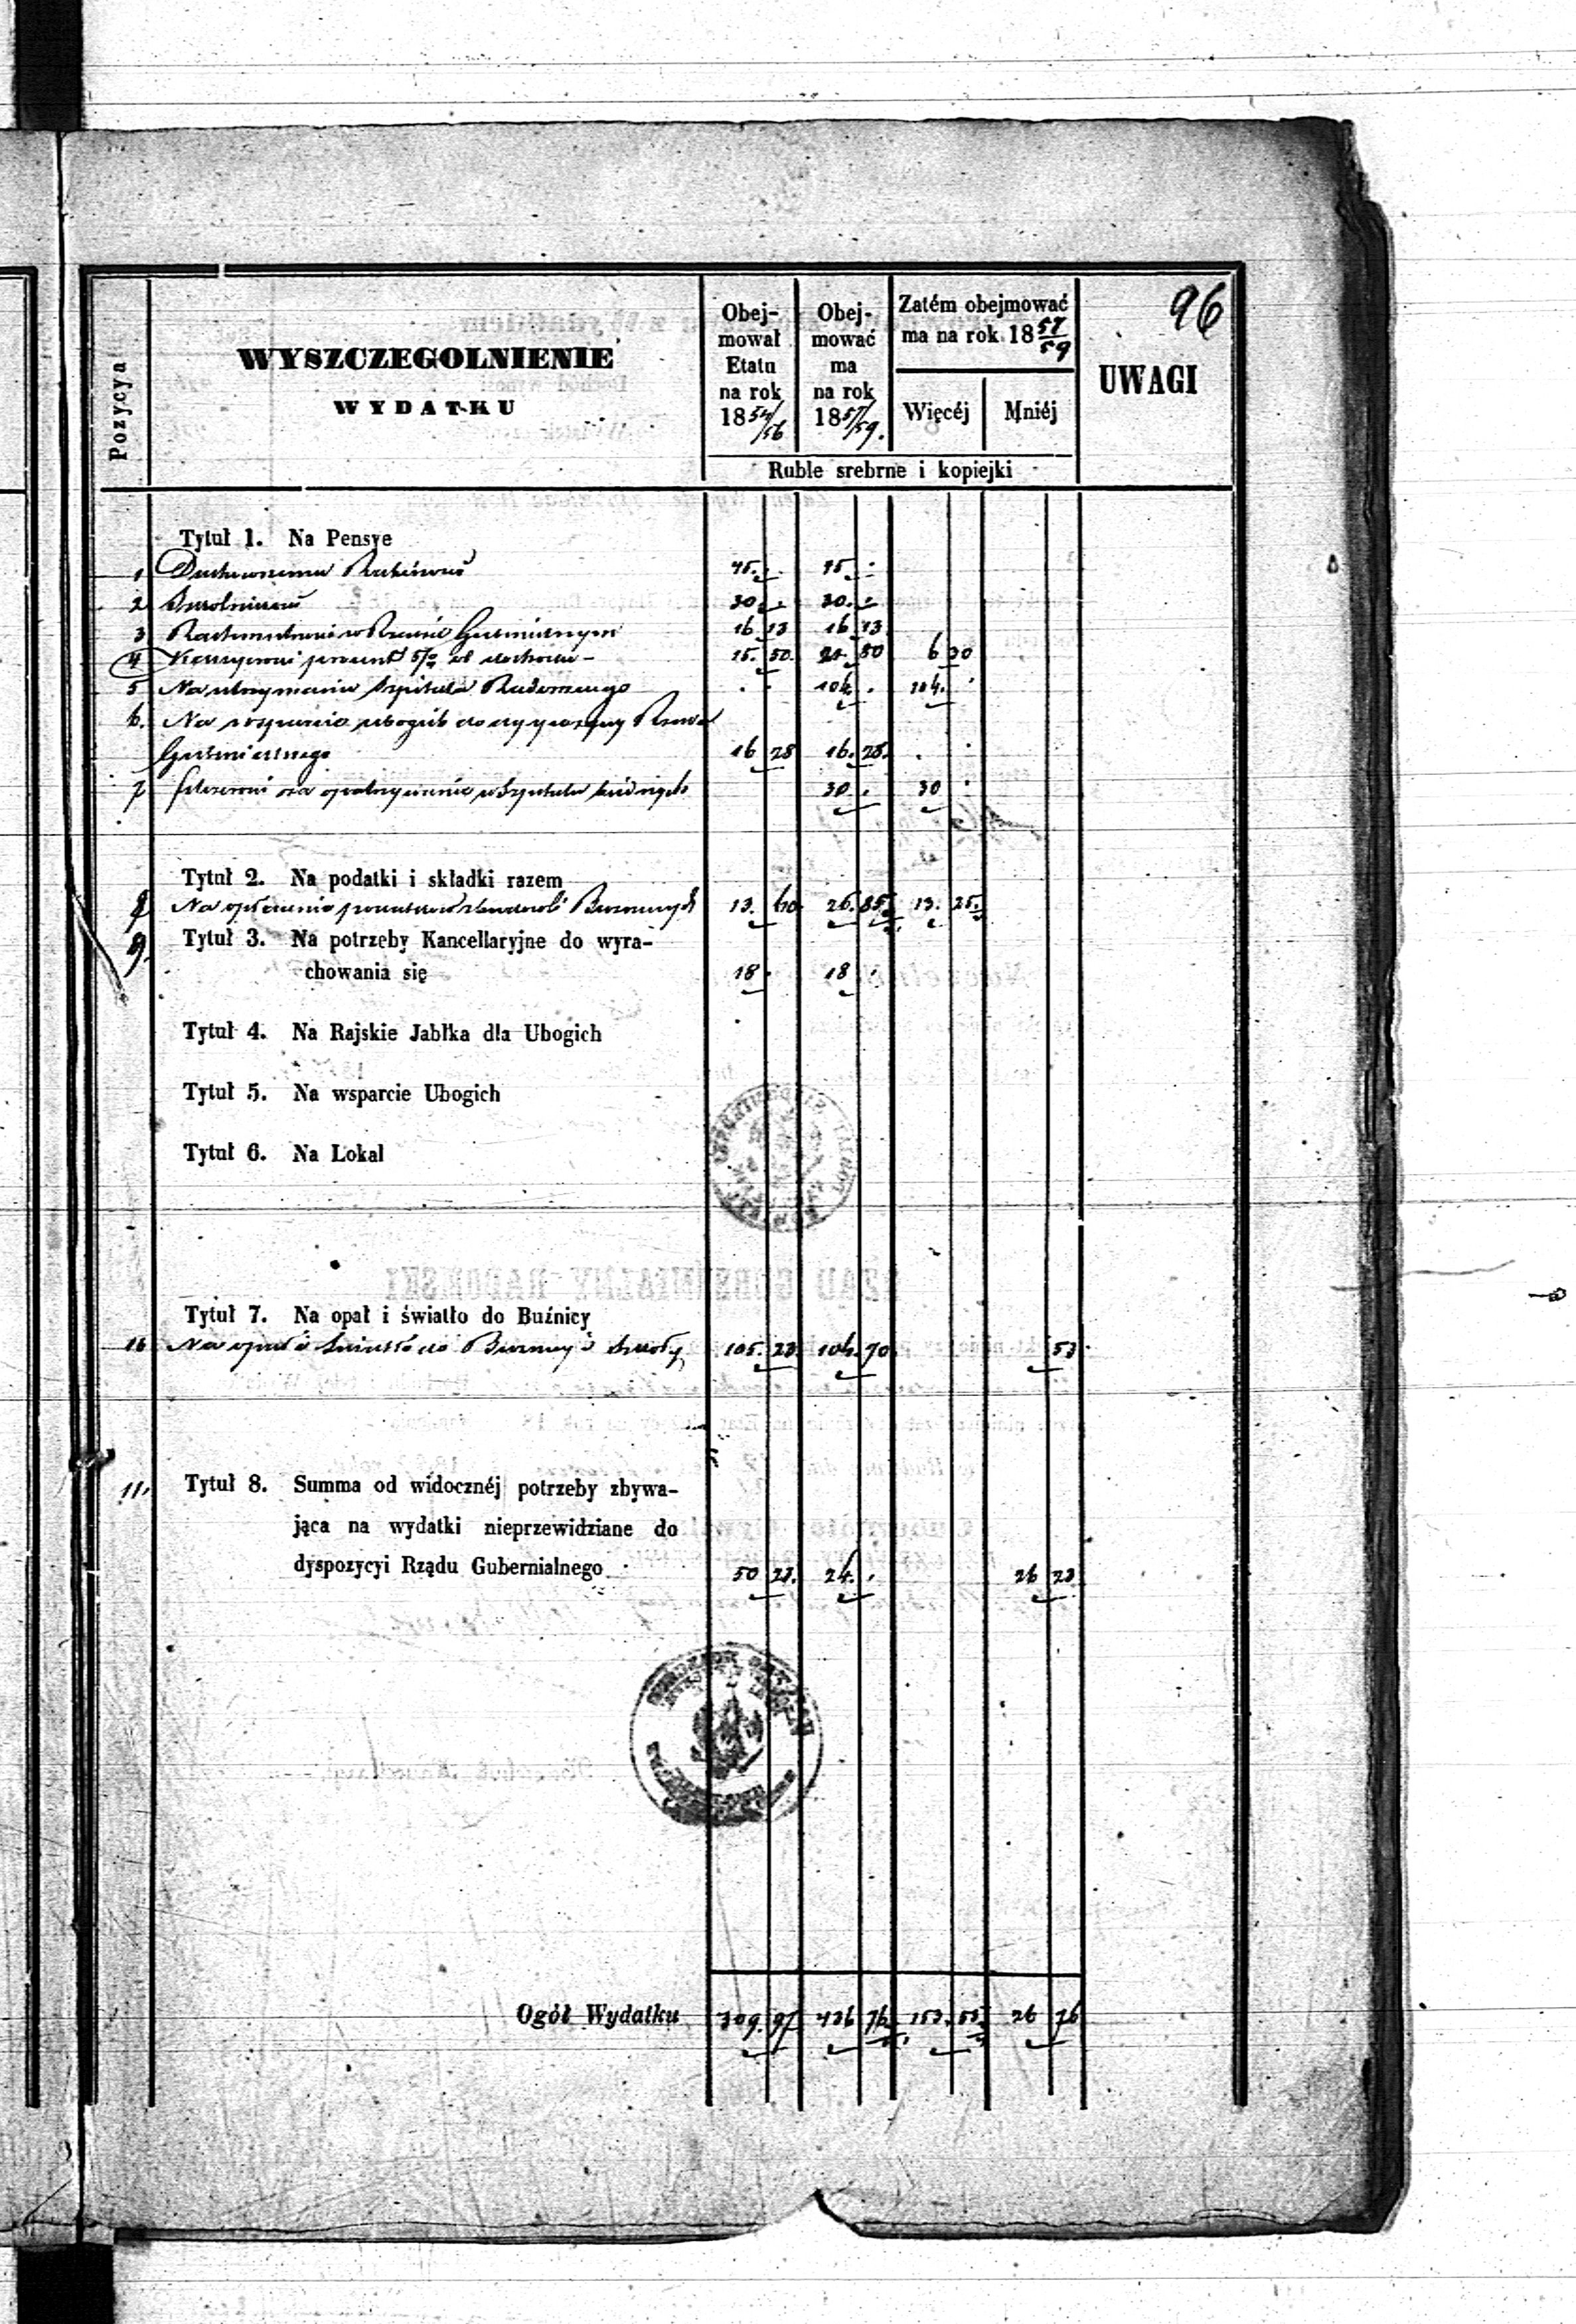 96
Pozycya
WYSZCZEGOLNIENIE
WYDATKU
Obej-
mował
Etatu
na rok
18 54/56
Obej-
mować
ma
na rok
18 57/59.
Zatém obejmować
ma na rok 18 57/59
Więcéj Mniéj
UWAGI
Ruble srebrne i kopiejki
Tytuł 1. Na Pensye
1 Duchownemu Rabinowi 45. . 45. .
2 Szkolnikowi 30. . 30. .
3 Rachmistrzowi w Rządzie Gubernialnym 16 13 16 13
4 Kassyerowi procent 5/00 od dochodu – 15. 50. 21. 80 6 30
5 Na utrzymanie Szpitala Radomskiego . . 104. . 104. .
6. Na wsparcie ubogich do dyspozycyi Rządu
Gubernialnego 16 28 16. 28. . .
7 Felczerowi za w Szpitalu 30. . 30 .
Tytuł 2. Na podatki i składki razem
8 Na opłacenie podatków z budowli Bużnicznych 13. 60 26. 85 13. 25.
9. Tytuł 3. Na potrzeby Kancellaryjne do wyra-
chowania się 18 . 18 .
Tytuł 4. Na Rajskie Jabłka dla Ubogich
Tytuł 5. Na wsparcie Ubogich
Tytuł 6. Na Lokal
Tytuł 7. Na opał i światło do Buźnicy
10 Na opał i światło do Buznicy i Szkoły 105. 23 104. 70 53
11. Tytuł 8. Summa od widocznéj potrzeby zbywa-
jąca na wydatki nieprzewidziane do
dyspozycyi Rządu Gubernialnego 50 23. 24. . 26 23
Ogół Wydatku 309. 97 436 76 153. 55 26 76